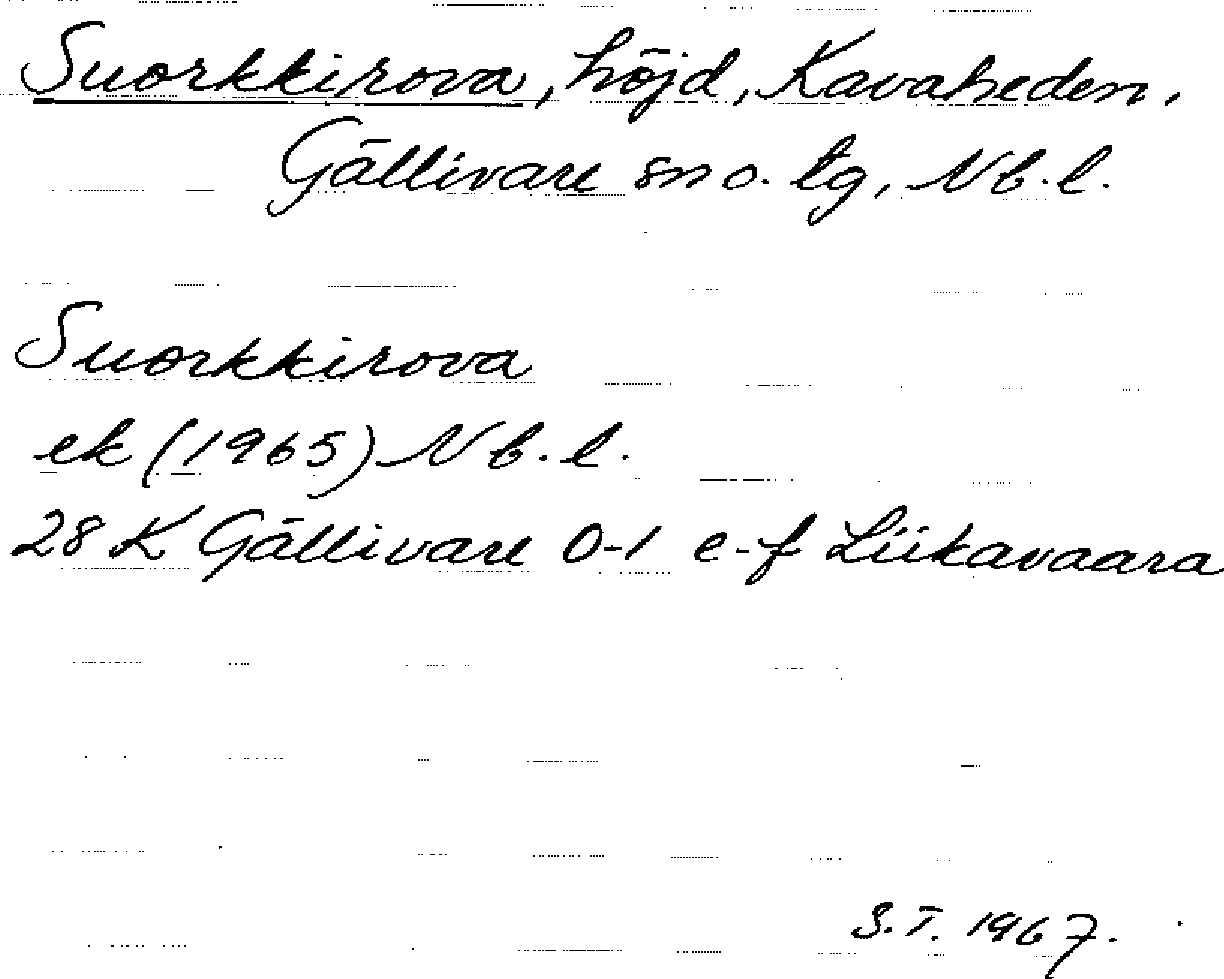 Suorkkirova, höjd, Kavaheden,
Gällivare sn o. tg, Nb.l.
Suorkkirova
ek (1965) Nb.l.
28 K Gällivare 0-1 e-f Liikavaara
S.T. 1967.